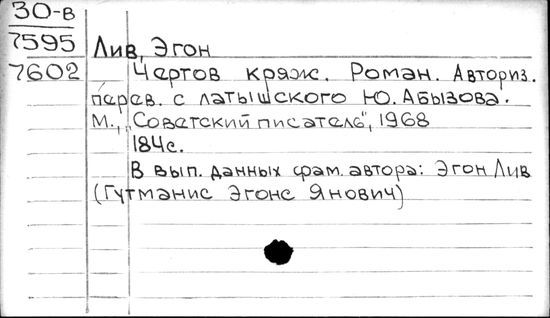 30-в
7595 Лив, Эгон
7602 Чертов кряж. Роман. Авториз.
перев. с латышского Ю. Абызова.
М., „Советский писатель", 1968
184с.
В вып. данных фам. автора: Эгон Лив
(Гутманис Эгонс Янович)